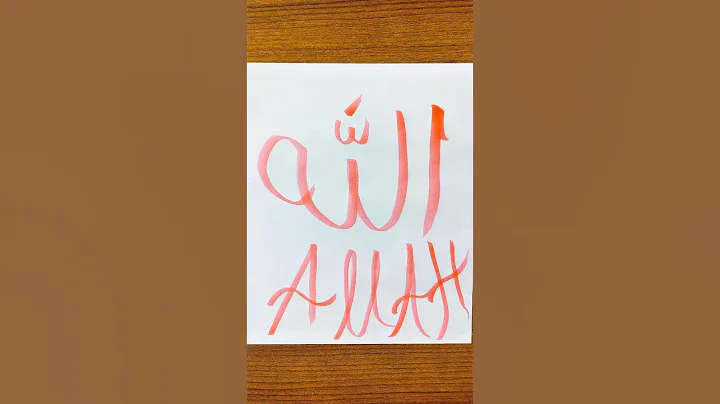 اللّٰه
ALLAH